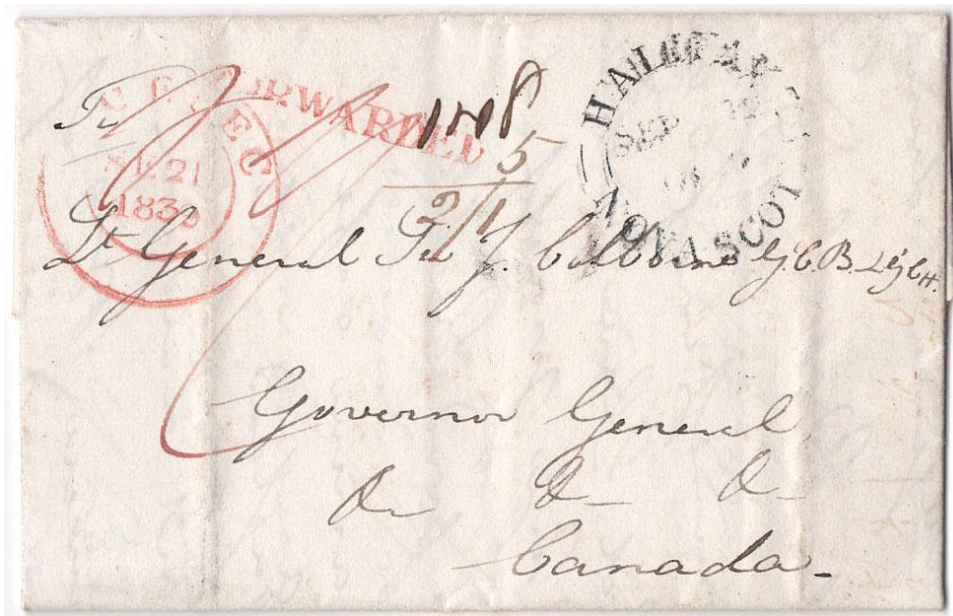 QUEBEC
21
183
FORWARDED
1N 8
5
2/1
HALIFAX
SEP
NOVA SCOT
To
Lt General Sir J. Colborne G.C.B. & G.C.H.
Governor General
&c &c &c
Canada -